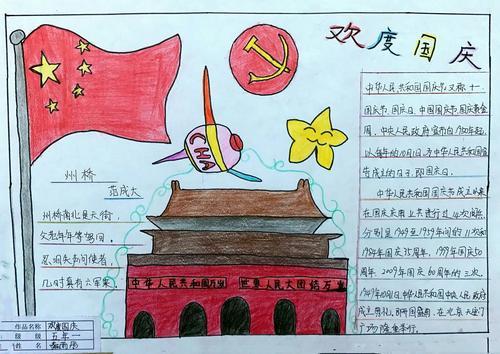 欢度国庆
中华人民共和国国庆节又称十一
国庆节、国庆日、中国国庆节、国庆黄金
周。中央人民政府宣布自1950年起,
以每年的10月1日,为中华人民共和国宣
告成立的日子,即国庆日。
中华人民共和国国庆节成立以来
在国庆庆典上共进行过14次阅兵。
分别是1949至1959年间的11次和
1984年国庆35周年、1999年国庆50
周年、2009年国庆60周年的三次。
1949年10月1日,中华人民共和国中央人民政府
成立典礼,即开国盛典,在北京天安门
广场隆重举行。
CHA
州桥
范成大
州桥南北是天街,
父老年年等驾回。
忍泪失声问使者,
几时真有六军来。
中华人民共和国万岁
世界人民大团结万岁
作品名称 欢度国庆
班级 五年一
姓名